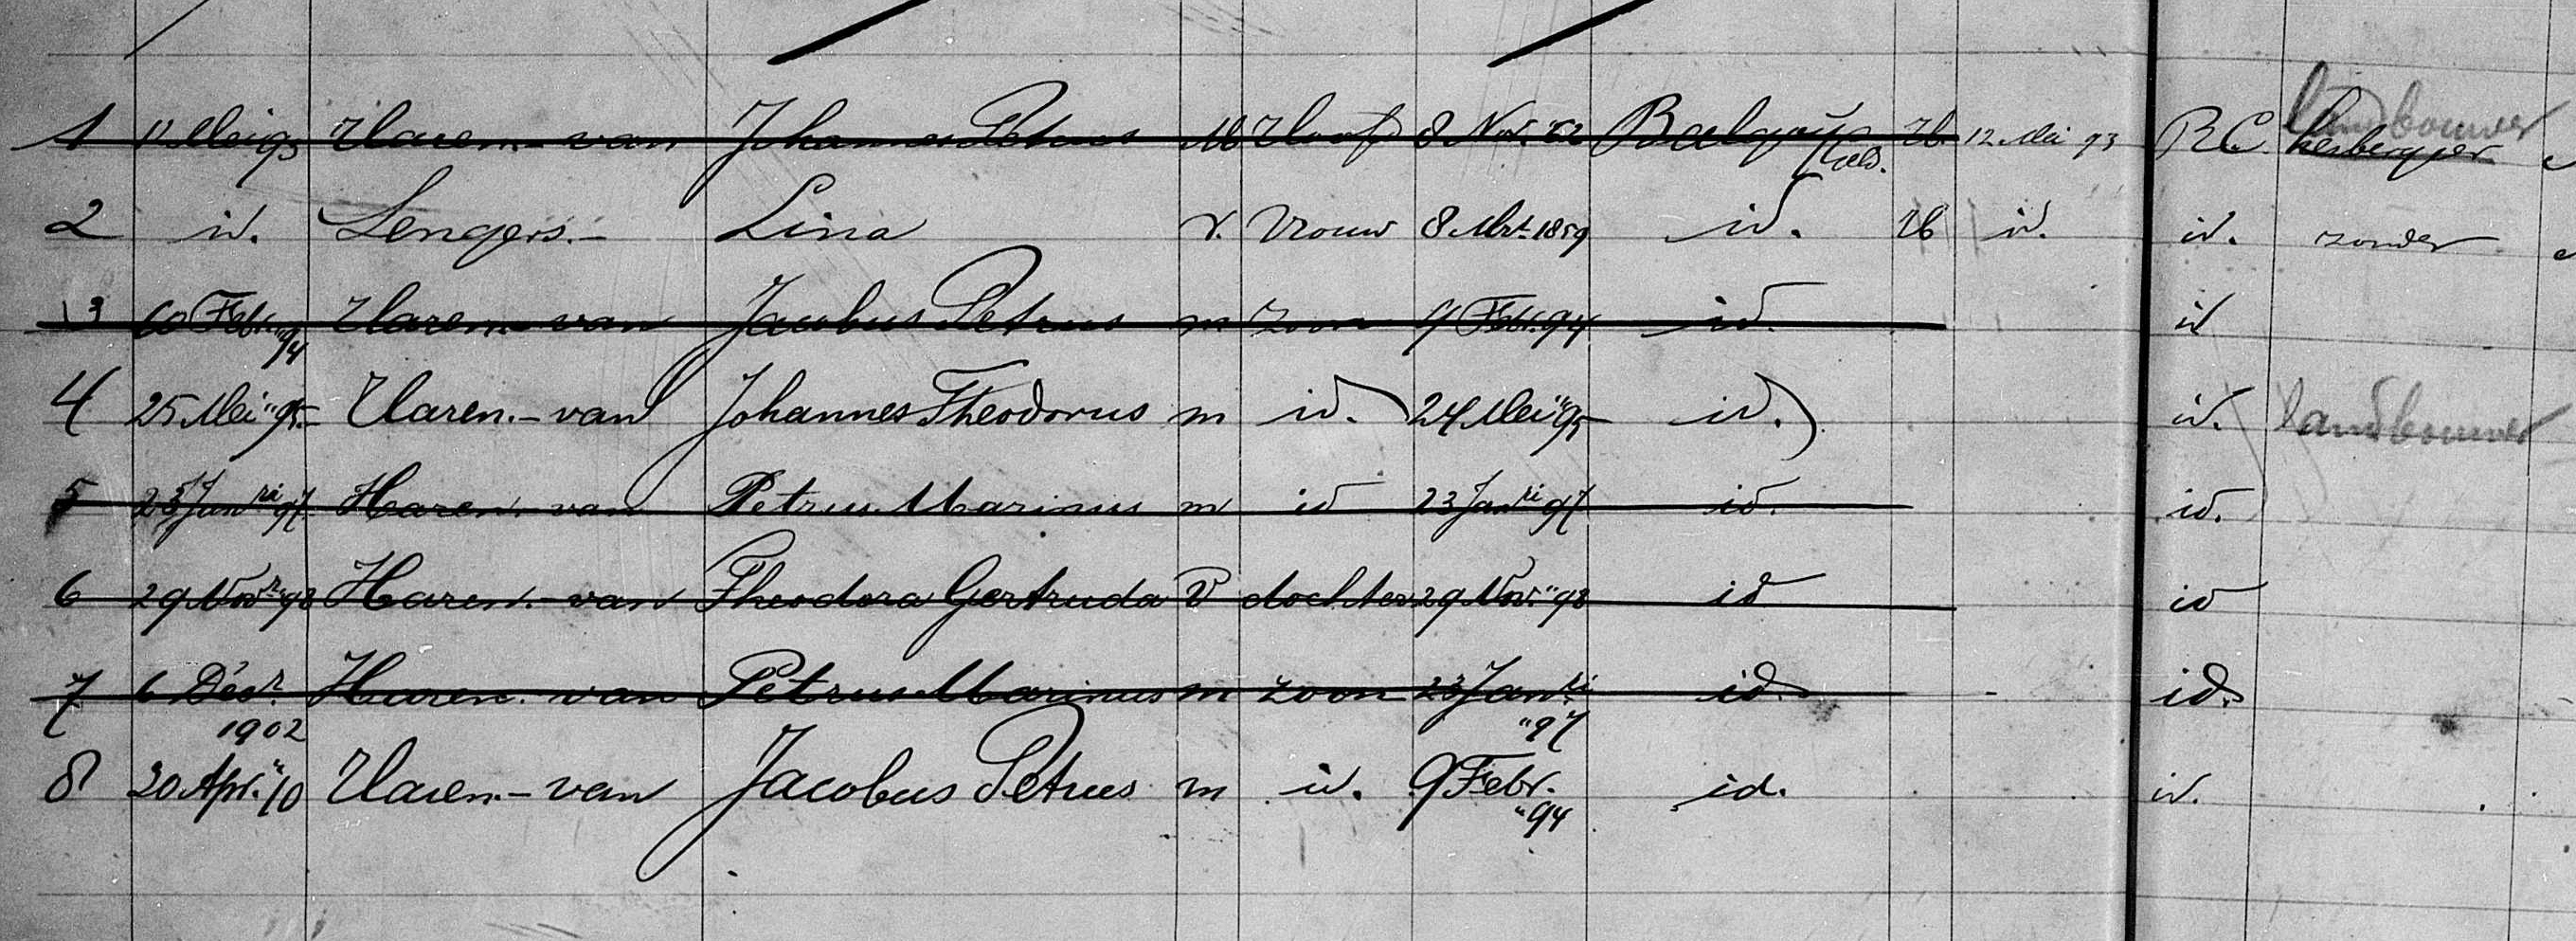 1 Mei 93 Haren.- van Johannes Petrus M Hoofd 8 Nov. 62 Balgoij Geld. H. 12 Mei 93 R.C. herbergier landbouwer
2 id. Lengers.- Lina v. Vrouw 8 Mrt. 1859 id. H id. id. zonder
3 10 Febr. "94 Haren.- van Jacobus Petrus m zoon 9 Febr. 94 id. id
4 25 Mei "95- Haren.- van Johannes Theodorus m id. 24 Mei "95 id. id. landbouwer
5 23 Janri 97. Haren.- van Petrus Marinus m id 23 Janri 97 id. id.
6 29 Novr "98 Haren.- van Theodora Gertruda V dochter 29 Nov. "98 id id
7 6 Decr. 1902 Haren. van Petrus Marinus m zoon 23 Janri "97 id. id.
8 20 Apr. "10 Haren.- van Jacobus Petrus m id. 9 Febr. "94 id. id.